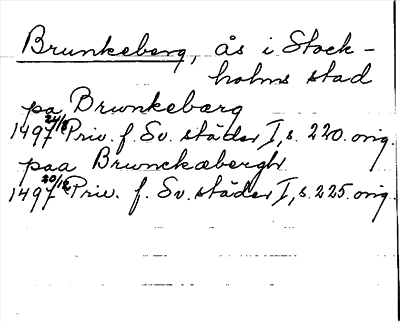 Brunkeberg, ås i Stock-
holms stad
pa Brunkebærg
1497 24/8 Priv. f. Sv. städer I, s. 220. orig.
paa Brunckæbergh
1497 20/12 Priv. f. Sv. städer I, s. 225. orig.